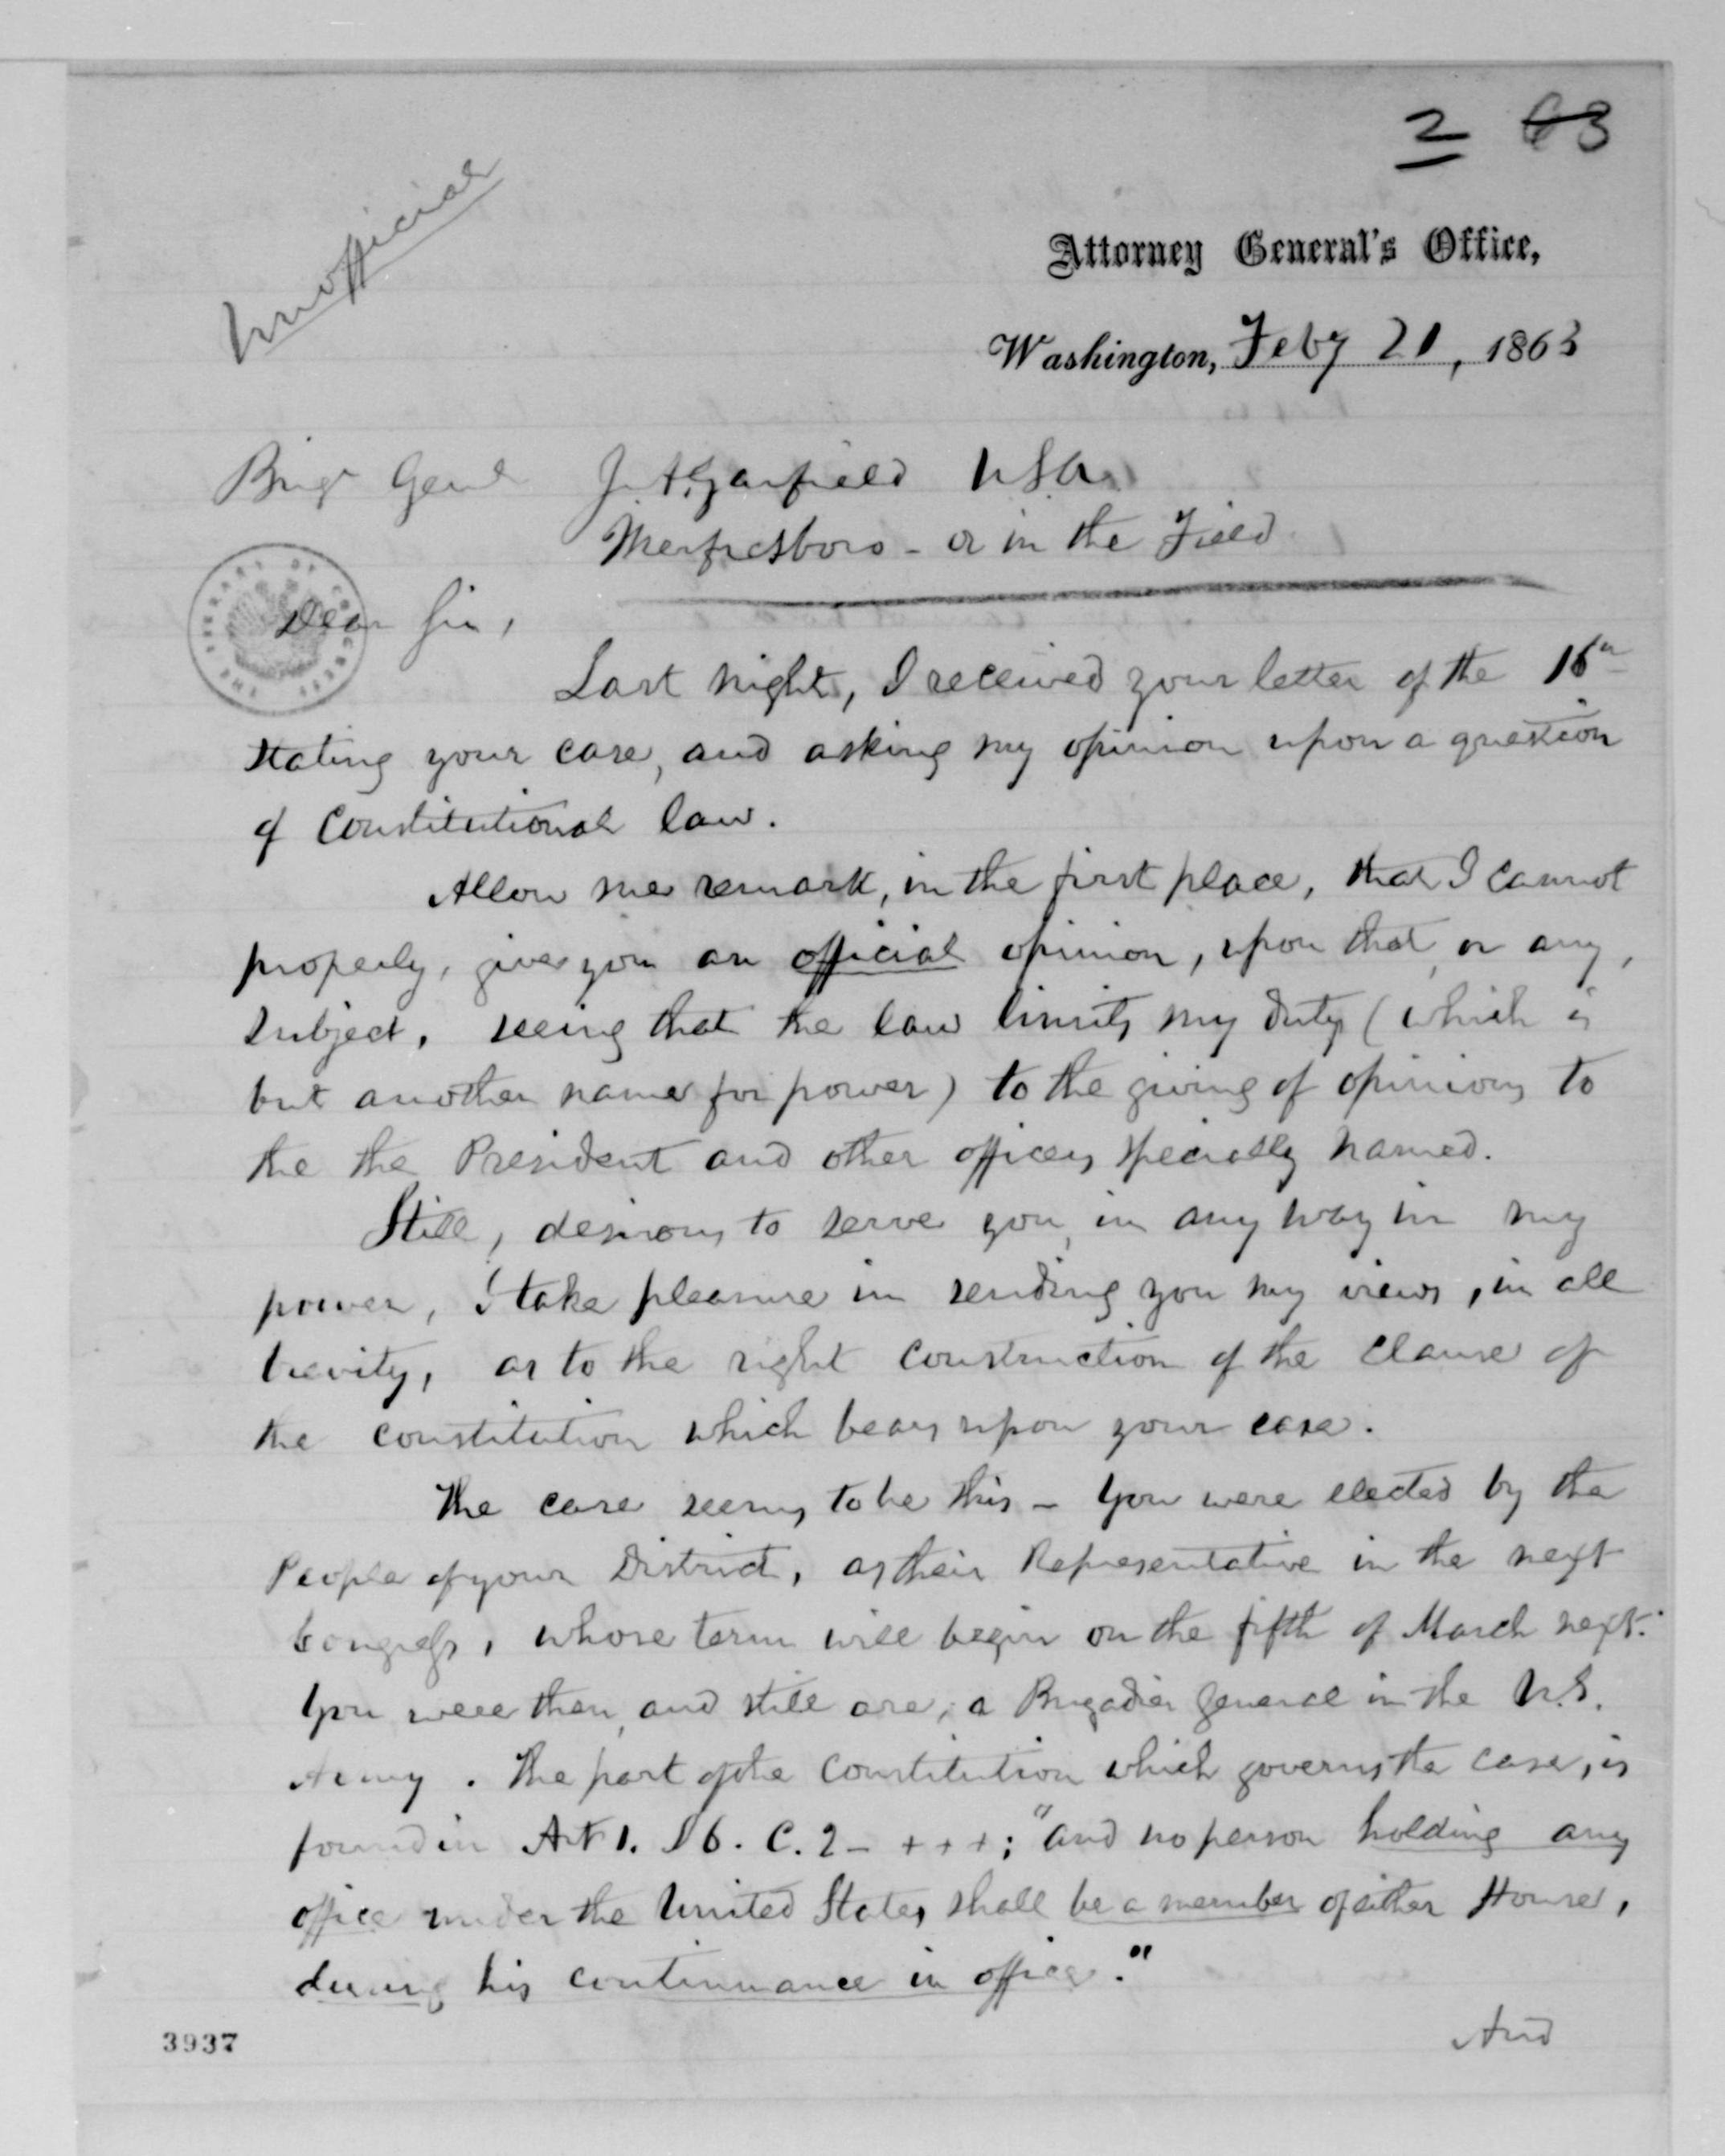 2 63
Unofficial
Attorney General's Office,
Washington, Feby 21, 1863
Brigr Genl J. A. Garfield USA
Murfresboro - or in the Field
THE LIBRARY OF CONGRESS
Dear Sir,
Last night, I received your letter of the 16th
stating your case, and asking my opinion upon a question
of Constitutional law.
Allow me remark, in the first place, that I cannot
properly, give you an official opinion, upon that, or any,
subject, seeing that the law limits my duty (which is
but another name for power) to the giving of opinions to
the the President and other officers specially named.
Still, desirous to serve you, in any way in my
power, I take pleasure in sending you my views, in all
brevity, as to the right construction of the clause of
the constitution which bears upon your case.
The case seems to be this - You were elected by the
People of your District, as their Representative in the next
Congress, whose term will begin on the fifth of March next.
You were then, and still are, a Brigadier General in the U.S.
Army. The part of the Constitution which governs the case, is
found in Art 1. S 6. C. 2 - + + +; "and no person holding any
office under the United States shall be a member of either House,
during his continuance in office."
And
3937